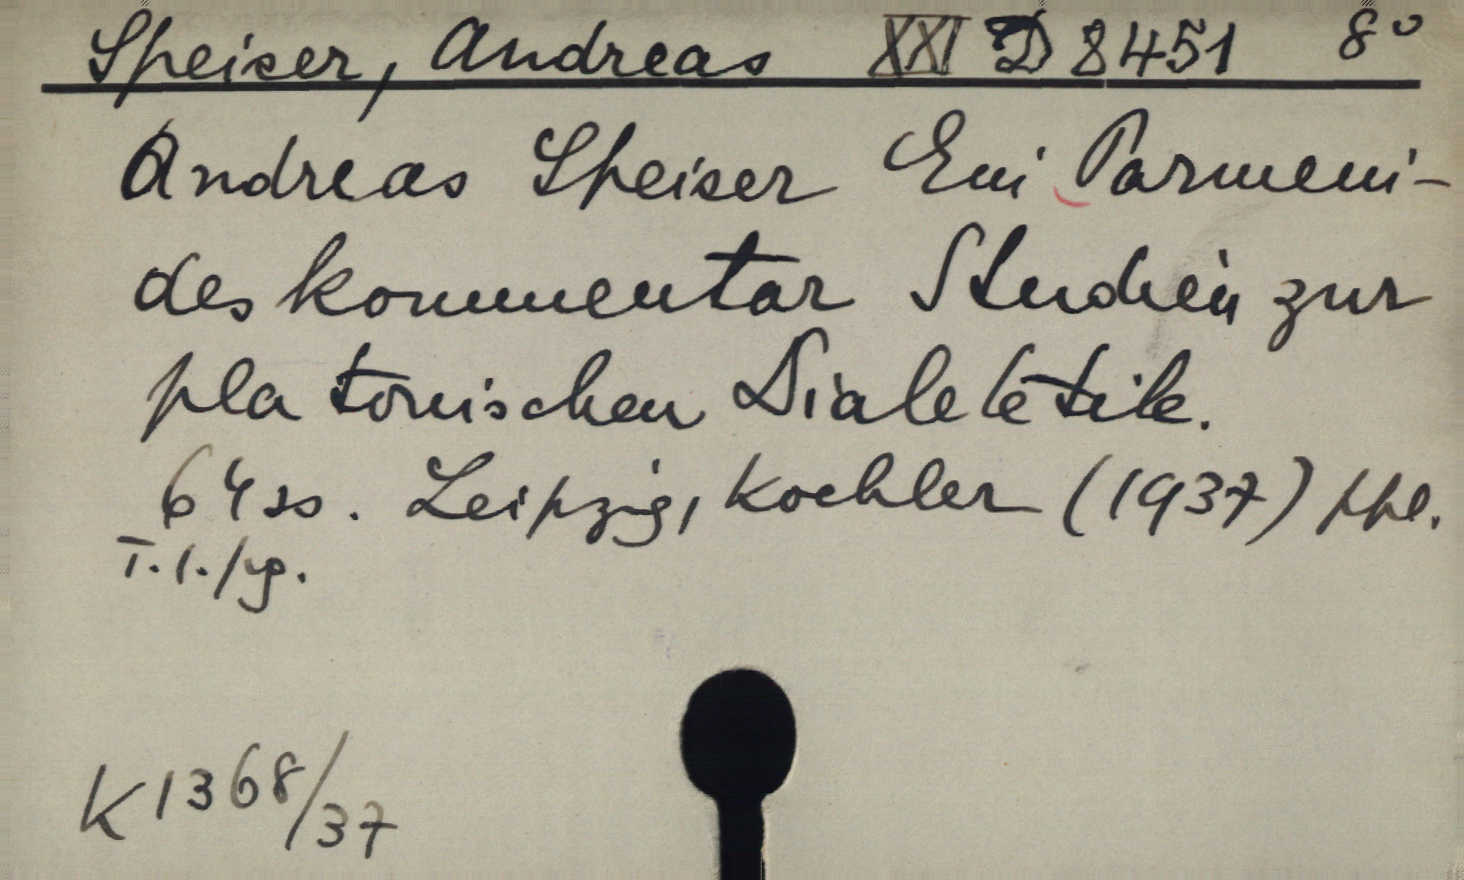 Speiser, Andreas XXI D 8451 8°
Andreas Speiser Ein Parmeni-
des kommentar Studien zur
platonischen Dialektik.
64 ss. Leipzig, Koehler (1937) ppl.
T. l. / yg.
K 1368/37